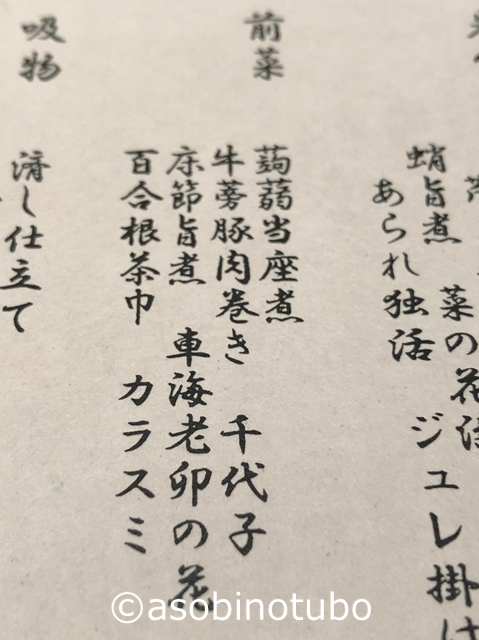 菜の花浸
蛸旨煮
あられ独活 ジュレ掛け
前菜
蒟蒻当座煮
牛蒡豚肉巻き 千代子
床節旨煮 車海老卯の花
百合根茶巾 カラスミ
吸物
清し仕立て
©asobinotubo